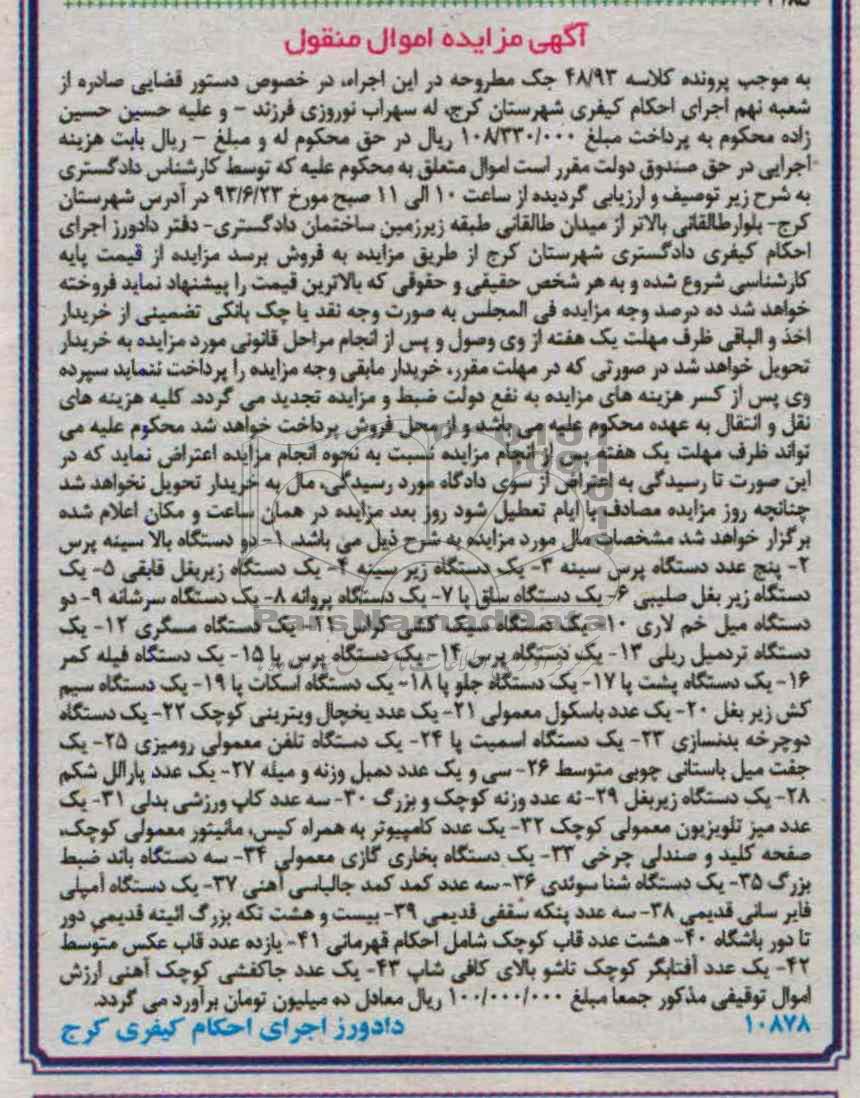 آگهی مزایده اموال منقول
به موجب پرونده کلاسه ۴۸/۹۳ جک مطروحه در این اجراء، در خصوص دستور قضایی صادره از
شعبه نهم اجرای احکام کیفری شهرستان کرج، له سهراب نوروزی فرزند - و علیه حسین حسین
زاده محکوم به پرداخت مبلغ ۱۰۸/۳۳۰/۰۰۰ ریال در حق محکوم له و مبلغ - ریال بابت هزینه
اجرایی در حق صندوق دولت مقرر است اموال متعلق به محکوم علیه که توسط کارشناس دادگستری
به شرح زیر توصیف و ارزیابی گردیده از ساعت ۱۰ الی ۱۱ صبح مورخ ۹۳/۶/۲۳ در آدرس شهرستان
کرج- بلوارطالقانی بالاتر از میدان طالقانی طبقه زیرزمین ساختمان دادگستری- دفتر دادورز اجرای
احکام کیفری دادگستری شهرستان کرج از طریق مزایده به فروش برسد مزایده از قیمت پایه
کارشناسی شروع شده و به هر شخص حقیقی و حقوقی که بالاترین قیمت را پیشنهاد نماید فروخته
خواهد شد ده درصد وجه مزایده فی المجلس به صورت وجه نقد یا چک بانکی تضمینی از خریدار
اخذ و الباقی ظرف مهلت یک هفته از وی وصول و پس از انجام مراحل قانونی مورد مزایده به خریدار
تحویل خواهد شد در صورتی که در مهلت مقرر، خریدار مابقی وجه مزایده را پرداخت ننماید سپرده
وی پس از کسر هزینه های مزایده به نفع دولت ضبط و مزایده تجدید می گردد. کلیه هزینه های
نقل و انتقال به عهده محکوم علیه می باشد و از محل فروش پرداخت خواهد شد محکوم علیه می
تواند ظرف مهلت یک هفته پس از انجام مزایده نسبت به نحوه انجام مزایده اعتراض نماید که در
این صورت تا رسیدگی به اعتراض از سوی دادگاه مورد رسیدگی، مال به خریدار تحویل نخواهد شد
چنانچه روز مزایده مصادف با ایام تعطیل شود روز بعد مزایده در همان ساعت و مکان اعلام شده
برگزار خواهد شد مشخصات مال مورد مزایده به شرح ذیل می باشد. ۱- دو دستگاه بالا سینه پرس
۲- پنج عدد دستگاه پرس سینه ۳- یک دستگاه زیر سینه ۴- یک دستگاه زیربغل قایقی ۵- یک
دستگاه زیر بغل صلیبی ۶- یک دستگاه ساق پا ۷- یک دستگاه پروانه ۸- یک دستگاه سرشانه ۹- دو
دستگاه میل خم لاری ۱۰- یک دستگاه سیک کشی کراس ۱۱- یک دستگاه مسگری ۱۲- یک
دستگاه تردمیل ریلی ۱۳- یک دستگاه پرس ۱۴- یک دستگاه پرس پا ۱۵- یک دستگاه فیله کمر
۱۶- یک دستگاه پشت پا ۱۷- یک دستگاه جلو پا ۱۸- یک دستگاه اسکات پا ۱۹- یک دستگاه سیم
کش زیر بغل ۲۰- یک عدد باسکول معمولی ۲۱- یک عدد یخچال ویترینی کوچک ۲۲- یک دستگاه
دوچرخه بدنسازی ۲۳- یک دستگاه اسمیت پا ۲۴- یک دستگاه تلفن معمولی رومیزی ۲۵- یک
جفت میل باستانی چوبی متوسط ۲۶- سی و یک عدد دمبل وزنه و میله ۲۷- یک عدد پارالل شکم
۲۸- یک دستگاه زیربغل ۲۹- نه عدد وزنه کوچک و بزرگ ۳۰- سه عدد کاپ ورزشی بدلی ۳۱- یک
عدد میز تلویزیون معمولی کوچک ۳۲- یک عدد کامپیوتر به همراه کیس، مانیتور معمولی کوچک،
صفحه کلید و صندلی چرخی ۳۳- یک دستگاه بخاری گازی معمولی ۳۴- سه دستگاه باند ضبط
بزرگ ۳۵- یک دستگاه شنا سوئدی ۳۶- سه عدد کمد کمد جالباسی آهنی ۳۷- یک دستگاه آمپلی
فایر سانی قدیمی ۳۸- سه عدد پنکه سقفی قدیمی ۳۹- بیست و هشت تکه بزرگ ائینه قدیمی دور
تا دور باشگاه ۴۰- هشت عدد قاب کوچک شامل احکام قهرمانی ۴۱- یازده عدد قاب عکس متوسط
۴۲- یک عدد آفتابگر کوچک تاشو بالای کافی شاپ ۴۳- یک عدد جاکفشی کوچک آهنی ارزش
اموال توقیفی مذکور جمعا مبلغ ۱۰۰/۰۰۰/۰۰۰ ریال معادل ده میلیون تومان برآورد می گردد.
۱۰۸۷۸ دادورز اجرای احکام کیفری کرج
ParsNamadData